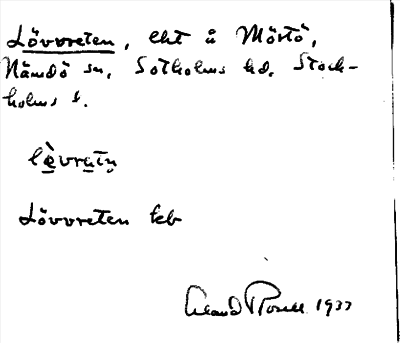 Lövvreten, eht å Mörtö,
Nämdö sn, Sotholms hd, Stock-
holms l.
lèvratn̥
Lövvreten kb
1937